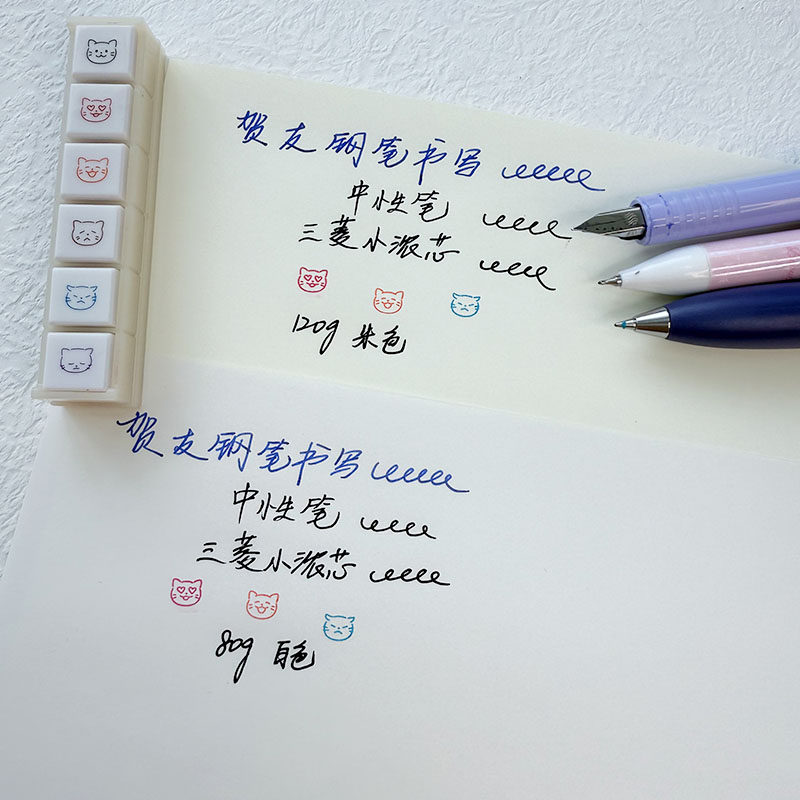 贺友钢笔书写
中性笔
三菱小浓芯
120g 米色
贺友钢笔书写
中性笔
三菱小浓芯
80g 白色